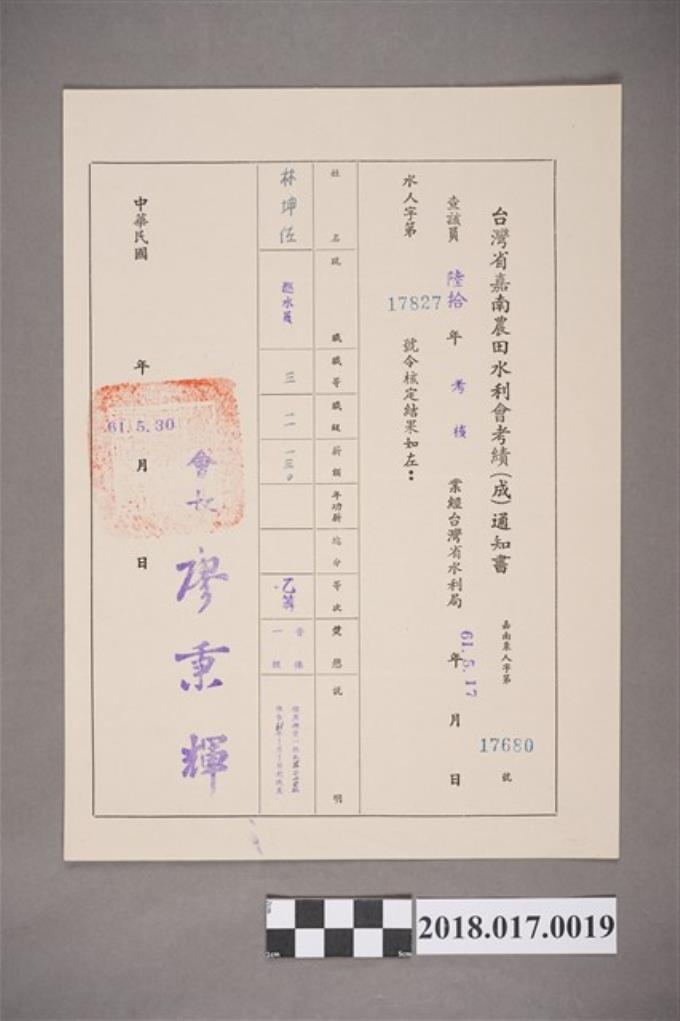 台灣省嘉南農田水利會考績(成)通知書
嘉南秉人字第 17680 號
查該員 陸拾 年 考核 業經台灣省水利局 61.5.17 年 月 日
水人字第 17827 號令核定結果如左：
姓名 現職 職等 職級 薪額 年功薪 總分 等次 獎懲 說明
林坤伍 巡水員 三 二 一三〇 乙等 晉俸一級
中華民國 年 月 日
61.5.30
會長 廖秉輝
2018.017.0019
1cm
5cm